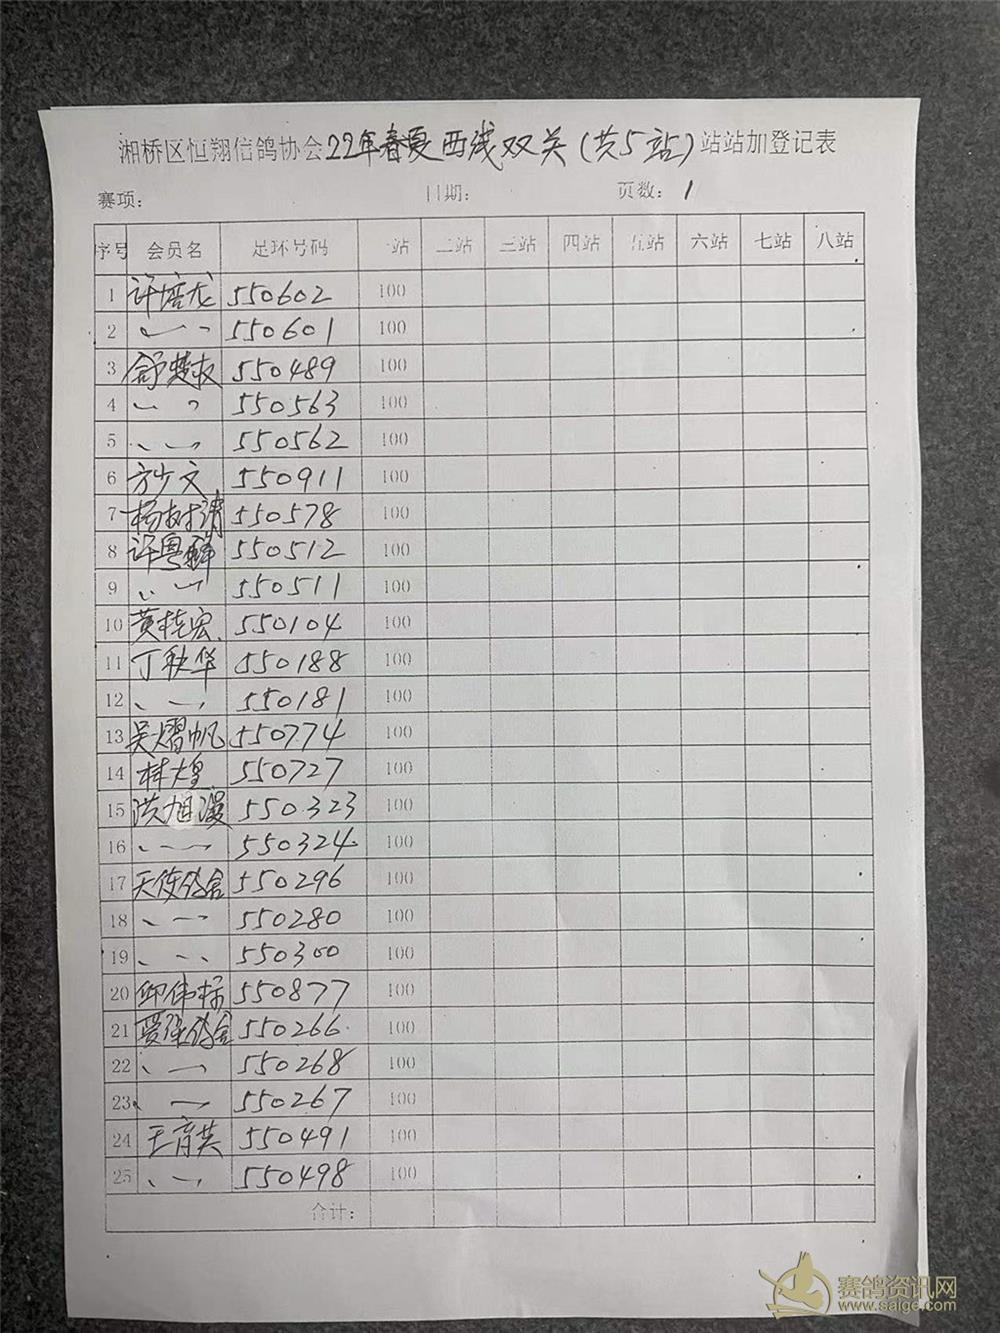 湘桥区恒翔信鸽协会22年春夏西线双关(共5站)站站加登记表
赛项: 日期: 页数: 1
序号 会员名 足环号码 一站 二站 三站 四站 五站 六站 七站 八站
1 许培龙 550602 100
2 〃 550601 100
3 舒楚 550489 100
4 〃 550563 100
5 〃 550562 100
6 方少文 550911 100
7 杨树清 550578 100
8 许粤 550512 100
9 〃 550511 100
10 黄桂宏 550104 100
11 丁秋华 550188 100
12 〃 550181 100
13 吴熠帆 550774 100
14 林煌 550727 100
15 洪旭漫 550323 100
16 〃 550324 100
17 天使鸽舍 550296 100
18 〃 550280 100
19 〃 550300 100
20 伟标 550877 100
21 鸽舍 550266 100
22 〃 550268 100
23 〃 550267 100
24 王育英 550491 100
25 〃 550498 100
合计:
赛鸽资讯网
www.saige.com